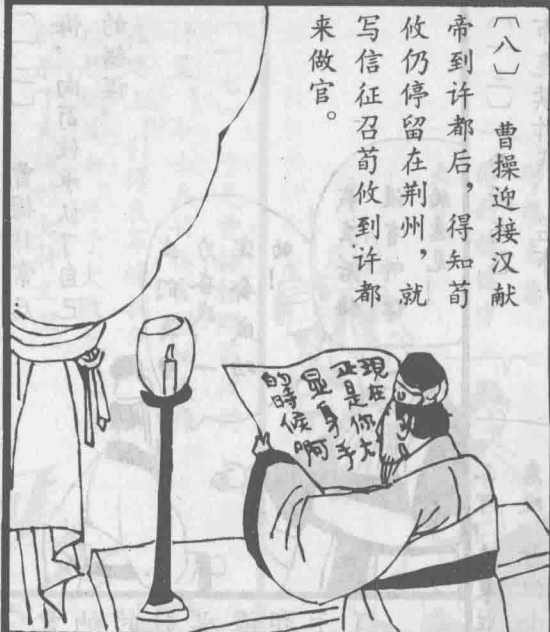 〔八〕 曹操迎接汉献
帝到许都后，得知荀
攸仍停留在荆州，就
写信征召荀攸到许都
来做官。
現在
正是你大
显身手
的時候啊